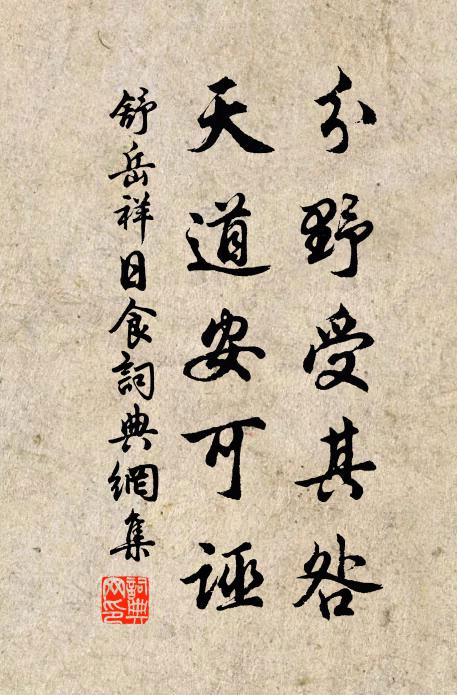 分野受其咎
天道安可誣
舒岳祥日食詞典網集
詞典网印